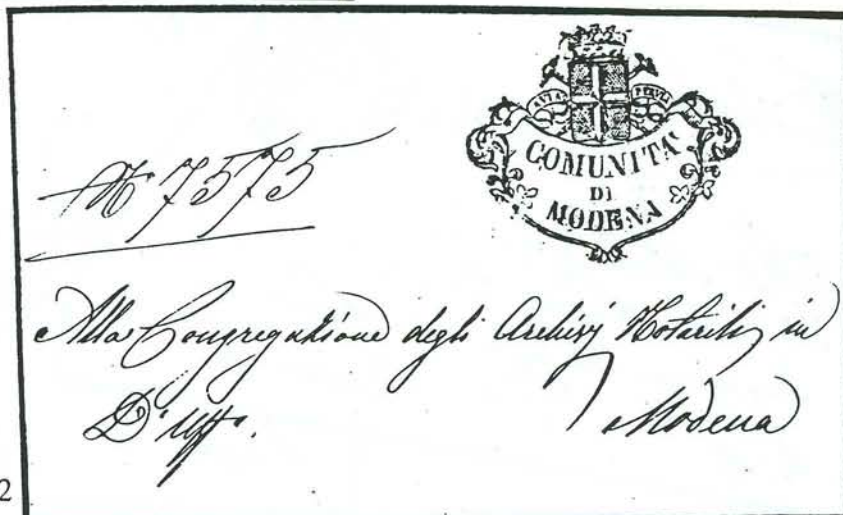 AVIA PERVIA
COMUNITA'
DI
MODENA
N° 7575
Alla Congregazione degli Archivj Notarili in
D'Uff°. Modena
2